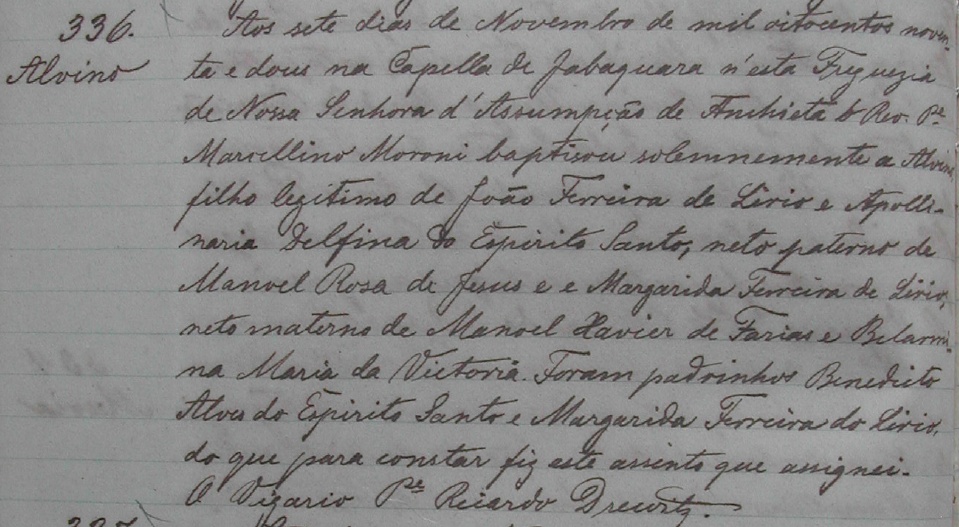 336.
Alvino
Aos sete dias de Novembro de mil oitocentos noven-
ta e dous na Capella de Jabaquara n'esta Freguezia
de Nossa Senhora d'Assumpção de Anchieta o Rev. Pe
Marcellino Moroni baptisou solemnemente a Alvino
filho legitimo de João Ferreira de Lirio e Apolli-
naria Delfina do Espirito Santo, neto paterno de
Manoel Rosa de Jesus e e Margarida Ferreira de Lirio,
neto materno de Manoel Xavier de Farias e Belarmi-
na Maria da Victoria. Foram padrinhos Benedicto
Alves do Espirito Santo e Margarida Ferreira do Lirio,
do que para constar fiz este assinto que assignei.
O Vigario Pe Ricardo Drewitz.
337.